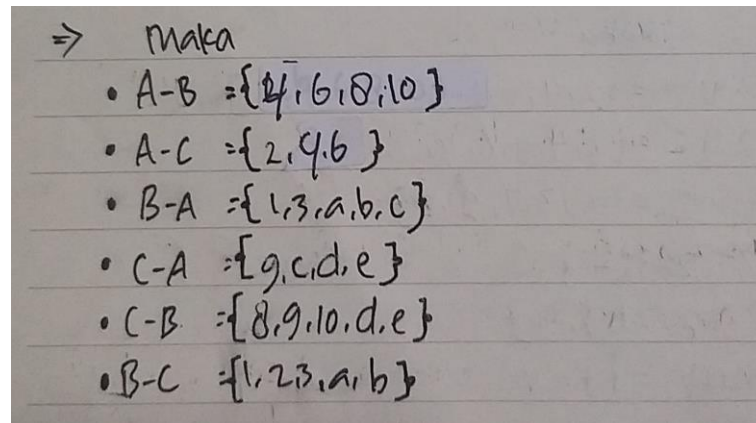 ⇒ Maka
• A-B = {4, 6, 8, 10}
• A-C = {2, 4, 6}
• B-A = {1, 3, a, b, c}
• C-A = {9, c, d, e}
• C-B = {8, 9, 10, d, e}
• B-C = {1, 2 3, a, b}